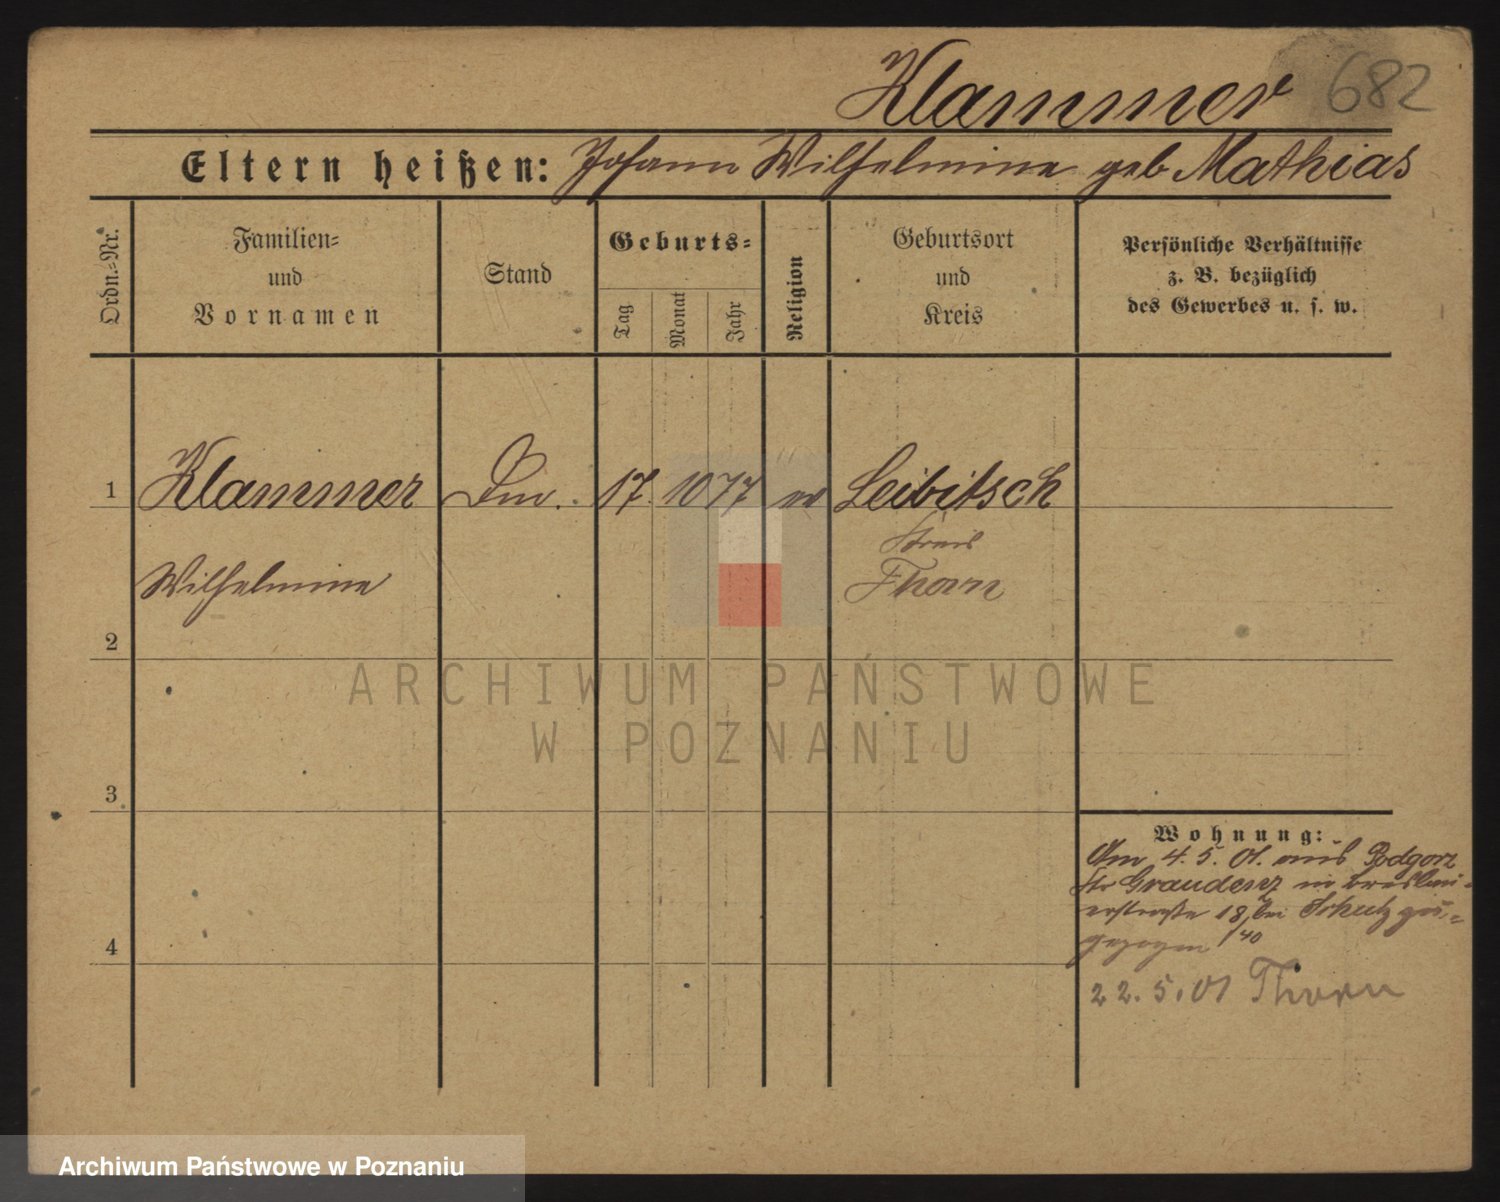 Klammer 682
Eltern heißen: Johann Wilhelmine geb Mathias
Ordn.-Nr.
Familien-
und
Vornamen
Stand
Geburts-
Tag
Monat
Jahr
Religion
Geburtsort
und
Kreis
Persönliche Verhältnisse
z. B. bezüglich
des Gewerbes u. s. w.
1 Klammer 17. 10 77 ev Leibitsch
Kreis
Wilhelmine Thorn
2
ARCHIWUM PAŃSTWOWE
W POZNANIU
3
Wohnung:
Am 4. 5. 01. aus Podgorz
Kr Graudenz in Breslau-
erstraße 18, bei Schulz zu-
gezogen
4
22. 5. 01 Thorn
Archiwum Państwowe w Poznaniu